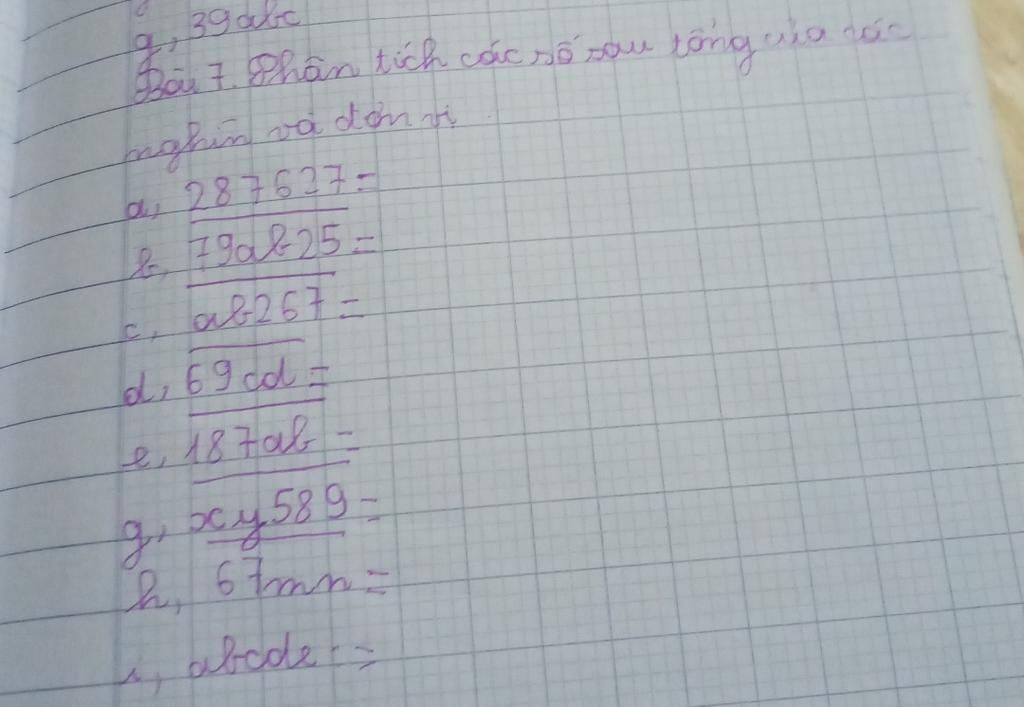 g, 39abc
Bài 7. Phân tích các số sau tổng của các
nghìn và đơn vị
a, 287627=
b, 79ab25=
c, ab267=
d, 69cd=
e, 187ab=
g, xy589=
h, 67mn=
i, abcde =